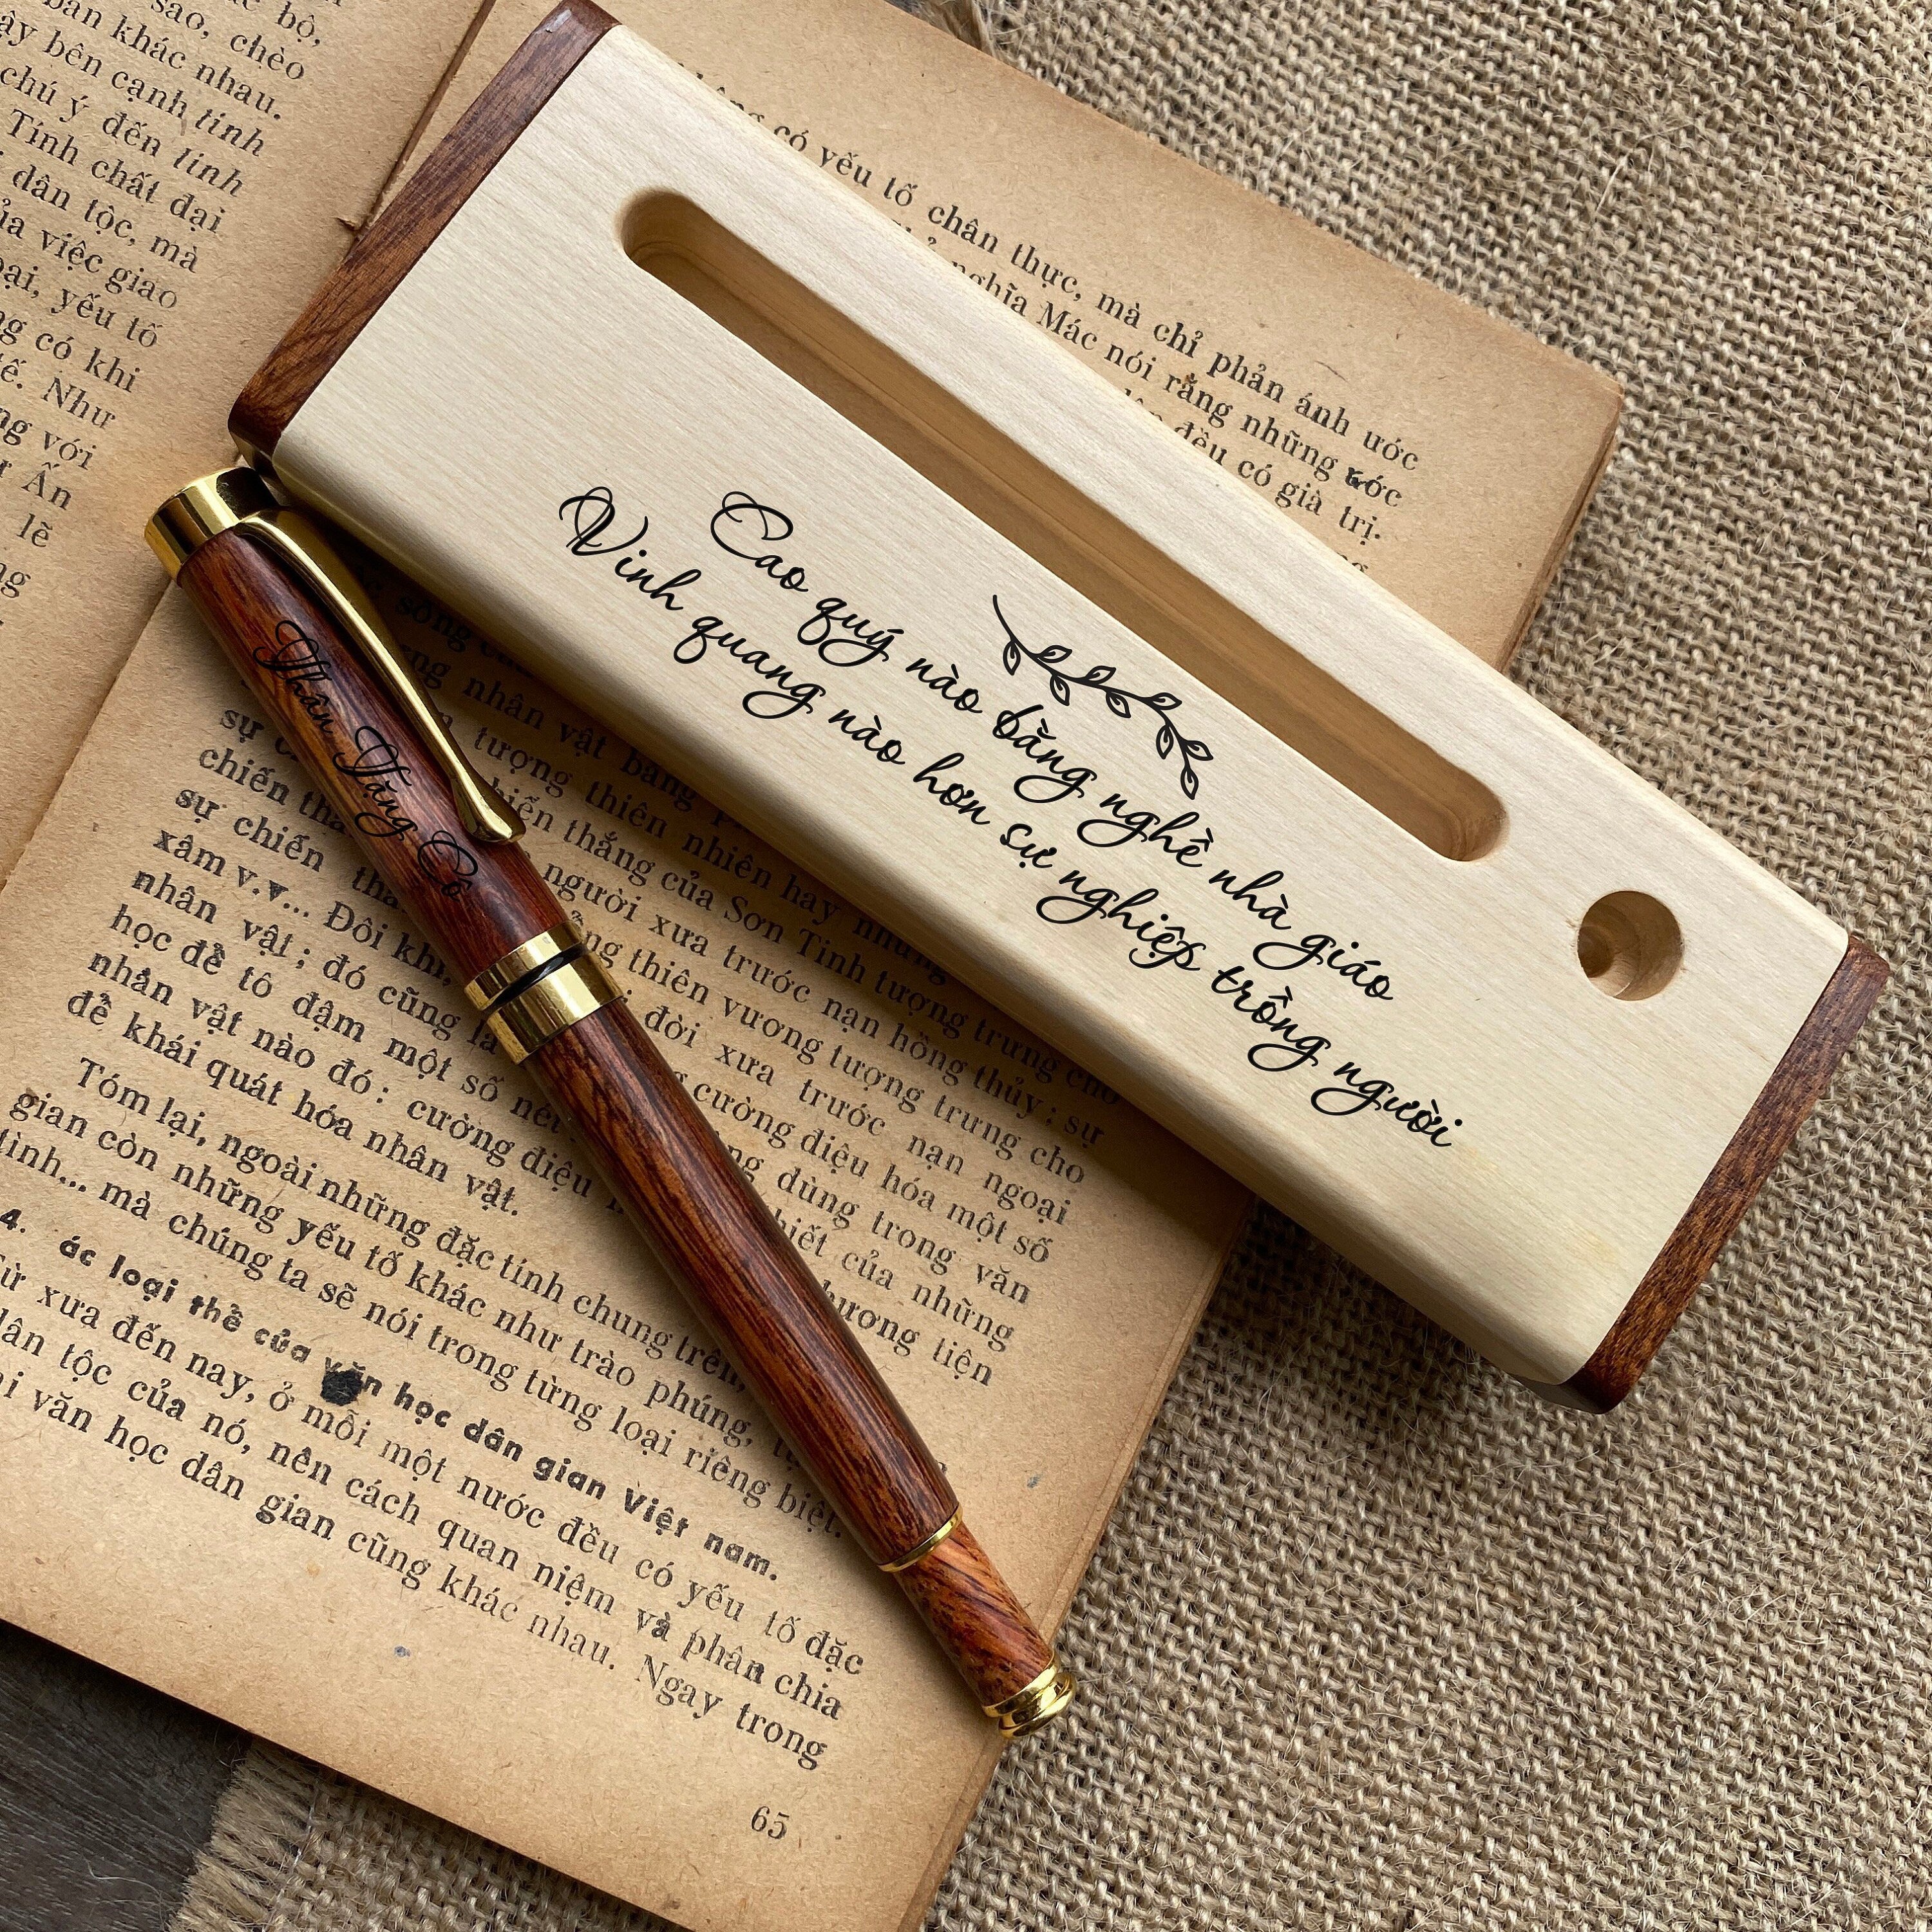 bộ,
sao, chèo
bản khác nhau.
bên cạnh tính
chú ý đến tính
Tính chất đại
dân tộc, mà
việc giao
yếu tố
có khi
Như
với
Ấn
lẽ
có yếu tố chân thực, mà chỉ phản ánh ước
nghĩa Mác nói rằng những ước
đều có giá trị.
Cao quý nào bằng nghề nhà giáo
Vinh quang nào hơn sự nghiệp trồng người
Thân Tặng Cô
nhân vật bằng
sự tượng thiên nhiên hay những
chiến thắng của Sơn Tinh tượng trưng cho
sự chiến người xưa trước nạn hồng thủy; sự
xâm v.v... Đôi khi, thiên vương tượng trưng cho
nhân vật; đó cũng là đời xưa trước nạn ngoại
học để tô đậm một số nét cường điệu hóa một số
nhân vật nào đó: cường điệu dùng trong văn
để khái quát hóa nhân vật. của những
phương tiện
Tóm lại, ngoài những đặc tính chung trên,
gian còn những yếu tố khác như trào phúng,
tình... mà chúng ta sẽ nói trong từng loại riêng biệt.
4. ác loại thể của văn học dân gian Việt nam.
Từ xưa đến nay, ở mỗi một nước đều có yếu tố đặc
dân tộc của nó, nên cách quan niệm và phân chia
văn học dân gian cũng khác nhau. Ngay trong
65